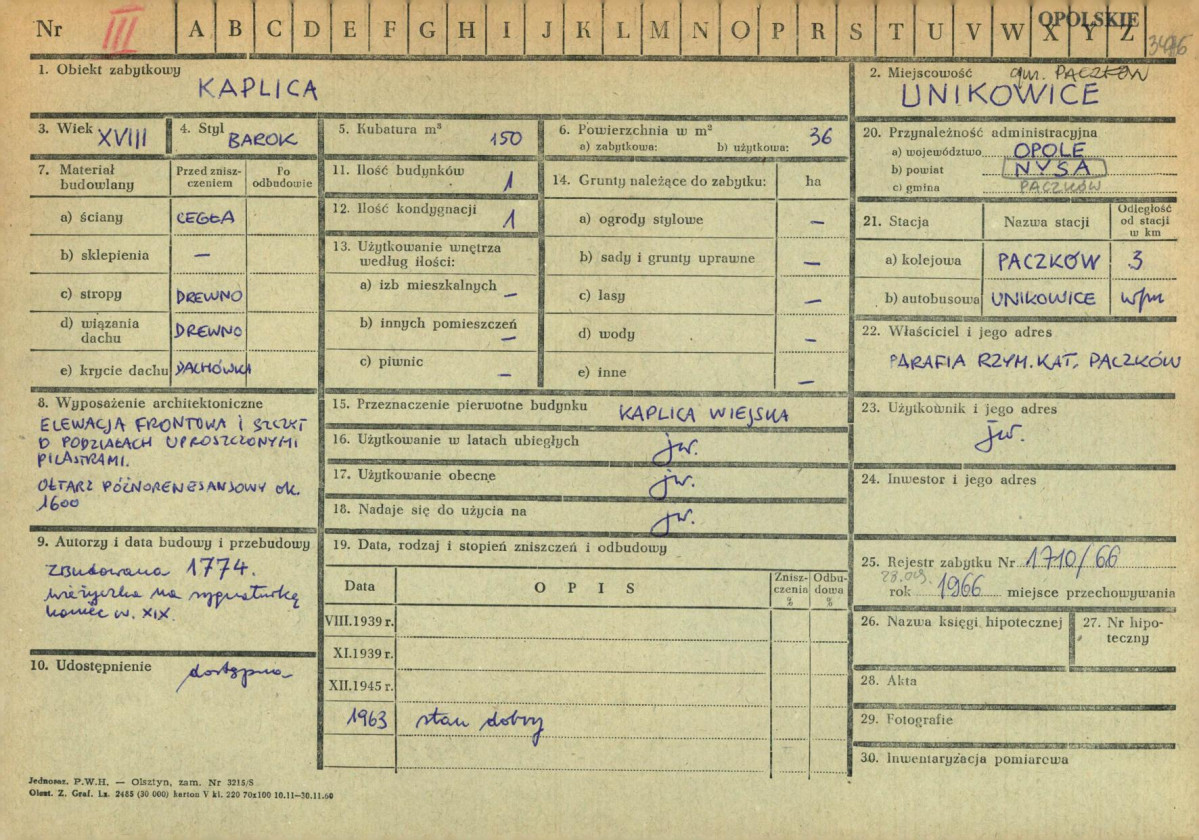 Nr III A B C D E F G H I J K L M N O P R S T U V W X Y Z
OPOLSKIE
1. Obiekt zabytkowy
KAPLICA
2. Miejscowość gm. PACZKÓW
UNIKOWICE
3. Wiek XVIII
4. Styl BAROK
5. Kubatura m³ 150
6. Powierzchnia w m²
a) zabytkowa: b) użytkowa: 36
7. Materiał budowlany
Przed zniszczeniem
Po odbudowie
a) ściany CEGŁA
b) sklepienia —
c) stropy DREWNO
d) wiązania dachu DREWNO
e) krycie dachu DACHÓWKA
8. Wyposażenie architektoniczne
ELEWACJA FRONTOWA I SZCZYT
O PODZIAŁACH UPROSZCZONYMI
PILASTRAMI.
OŁTARZ PÓŹNORENESANSOWY ok.
1600
9. Autorzy i data budowy i przebudowy
Zbudowana 1774.
wieżyczka na sygnaturkę
koniec w. XIX.
10. Udostępnienie dostępna
11. Ilość budynków 1
12. Ilość kondygnacji 1
13. Użytkowanie wnętrza
według ilości:
a) izb mieszkalnych —
b) innych pomieszczeń —
c) piwnic —
14. Grunty należące do zabytku: ha
a) ogrody stylowe —
b) sady i grunty uprawne —
c) lasy —
d) wody —
e) inne —
15. Przeznaczenie pierwotne budynku KAPLICA WIEJSKA
16. Użytkowanie w latach ubiegłych jw.
17. Użytkowanie obecne jw.
18. Nadaje się do użycia na jw.
19. Data, rodzaj i stopień zniszczeń i odbudowy
Data OPIS Zniszczenia % Odbudowa %
VIII.1939 r.
XI.1939 r.
XII.1945 r.
1963 stan dobry
20. Przynależność administracyjna
a) województwo OPOLE
b) powiat NYSA
c) gmina PACZKÓW
21. Stacja Nazwa stacji Odległość od stacji w km
a) kolejowa PACZKÓW 3
b) autobusowa UNIKOWICE
22. Właściciel i jego adres
PARAFIA RZYM. KAT. PACZKÓW
23. Użytkownik i jego adres
jw.
24. Inwestor i jego adres
25. Rejestr zabytku Nr 1710/66
rok 1966 miejsce przechowywania
26. Nazwa księgi hipotecznej
27. Nr hipoteczny
28. Akta
29. Fotografie
30. Inwentaryzacja pomiarowa
Jednoraz. P.W.H. — Olsztyn, zam. Nr 3215/S
Olszt. Z. Graf. Lz. 2485 (30 000) karton V kl. 220 70x100 10.11—30.11.60